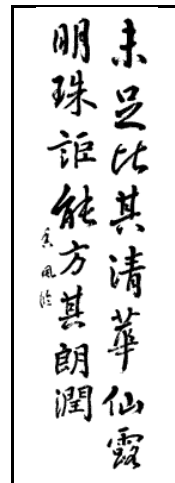 未足比其清華仙露
明珠詎能方其朗潤